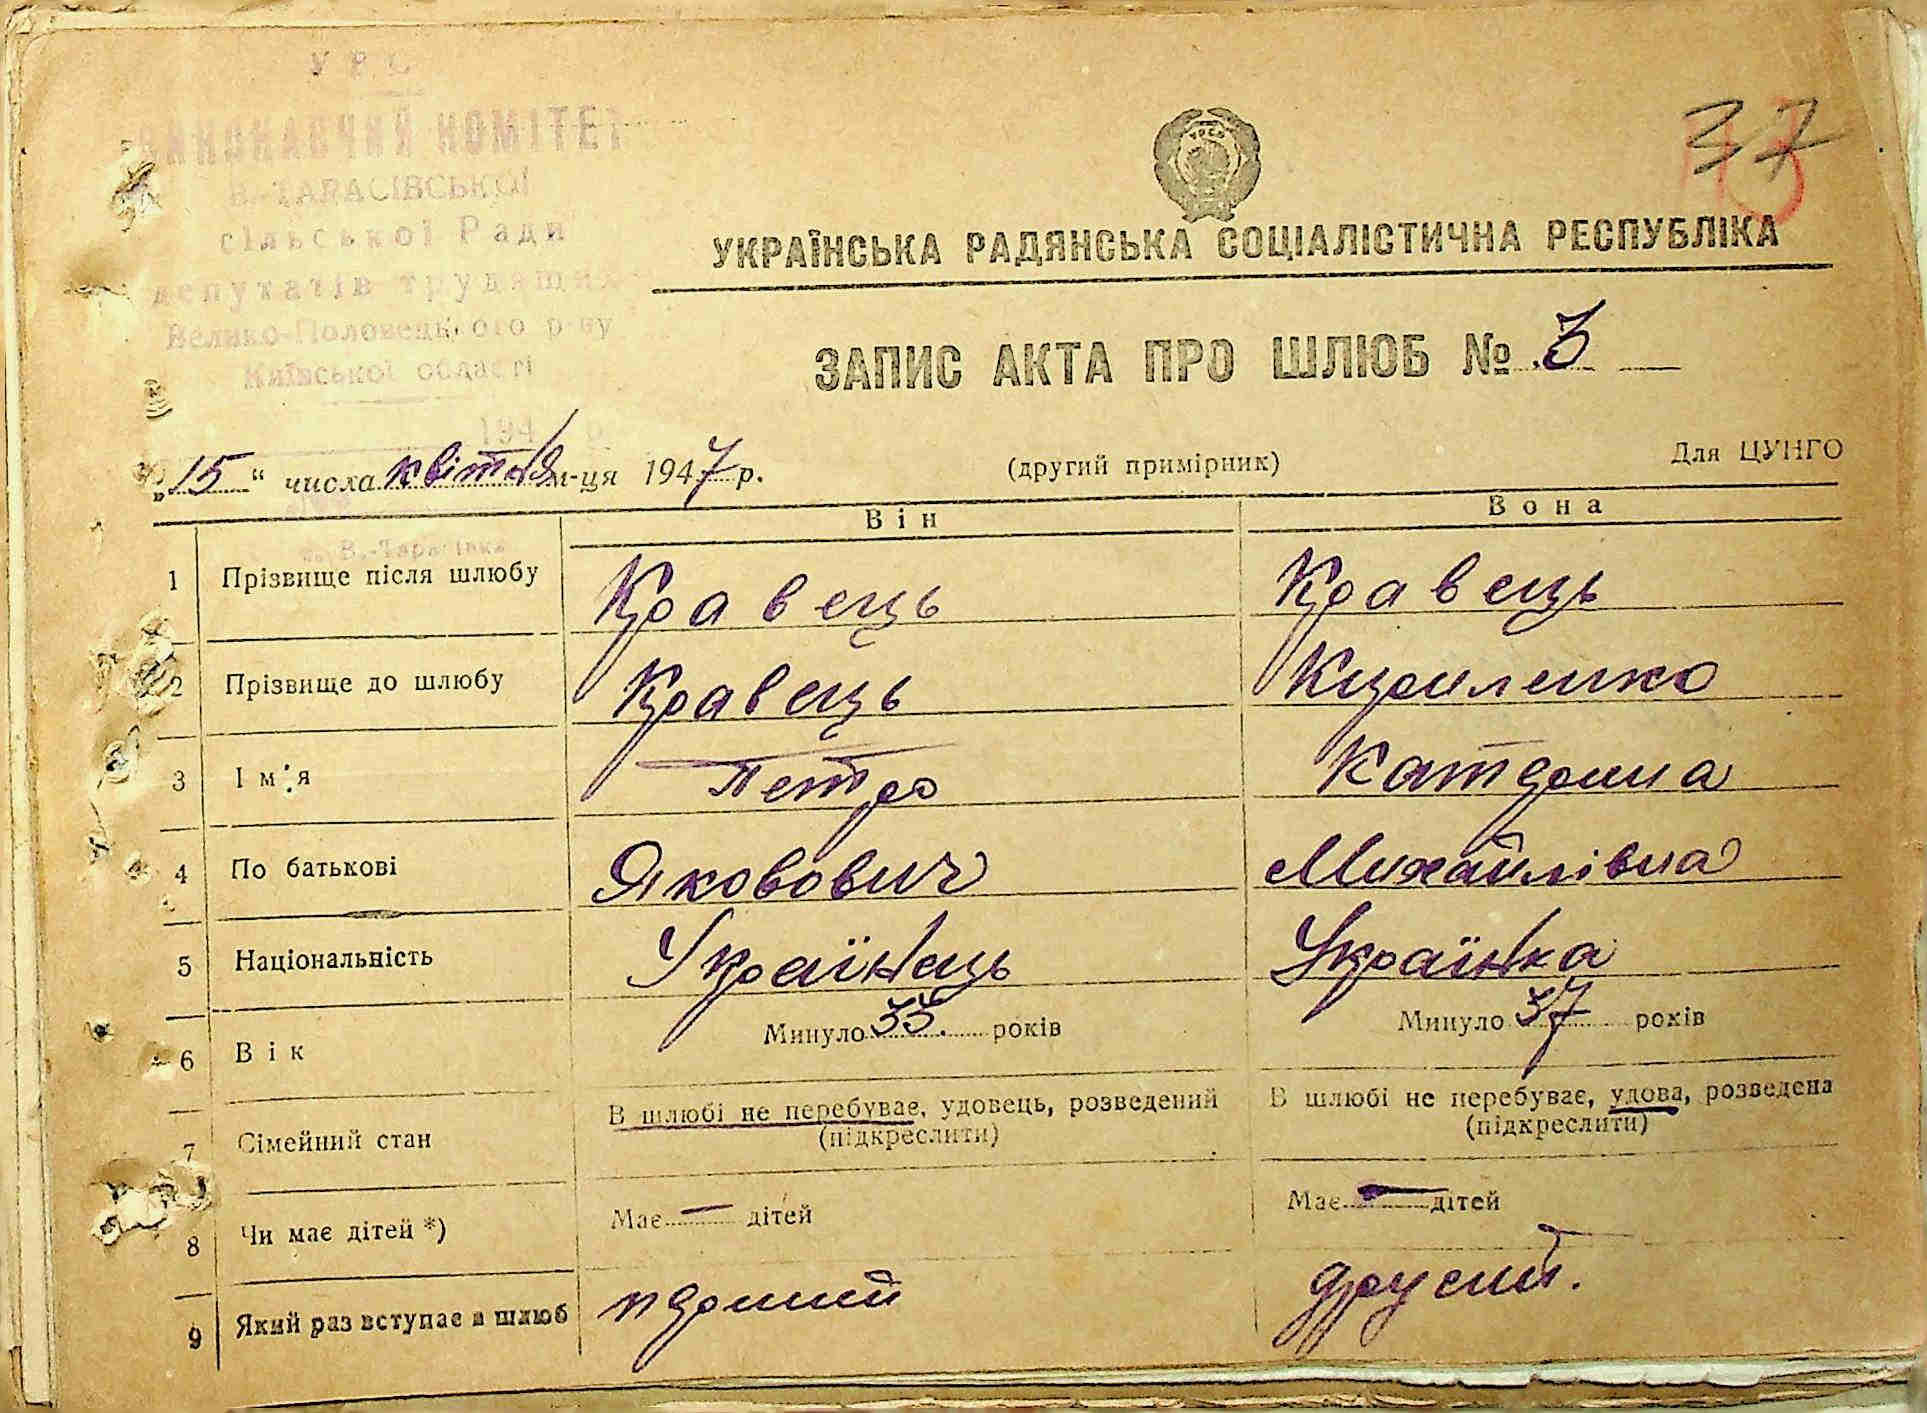 УРС
ВИКОНАВЧИЙ КОМІТЕТ
В.-ТАРАСІВСЬКОЇ
сільської Ради
депутатів трудящих
Велико-Половецького р-ну
Київської області
194 р.
с. В.-Тарасівка
37
УКРАЇНСЬКА РАДЯНСЬКА СОЦІАЛІСТИЧНА РЕСПУБЛІКА
ЗАПИС АКТА ПРО ШЛЮБ № 3
„15“ числа квітня м-ця 1947 р. (другий примірник) Для ЦУНГО
Він Вона
1 Прізвище після шлюбу Кравець Кравець
2 Прізвище до шлюбу Кравець Кириленко
3 Ім'я Петро Катерина
4 По батькові Якович Михайлівна
5 Національність Українець Українка
6 Вік Минуло 35 років Минуло 37 років
7 Сімейний стан В шлюбі не перебуває, удовець, розведений (підкреслити) В шлюбі не перебуває, удова, розведена (підкреслити)
8 Чи має дітей *) Має — дітей Має — дітей
9 Який раз вступає в шлюб перший другий.